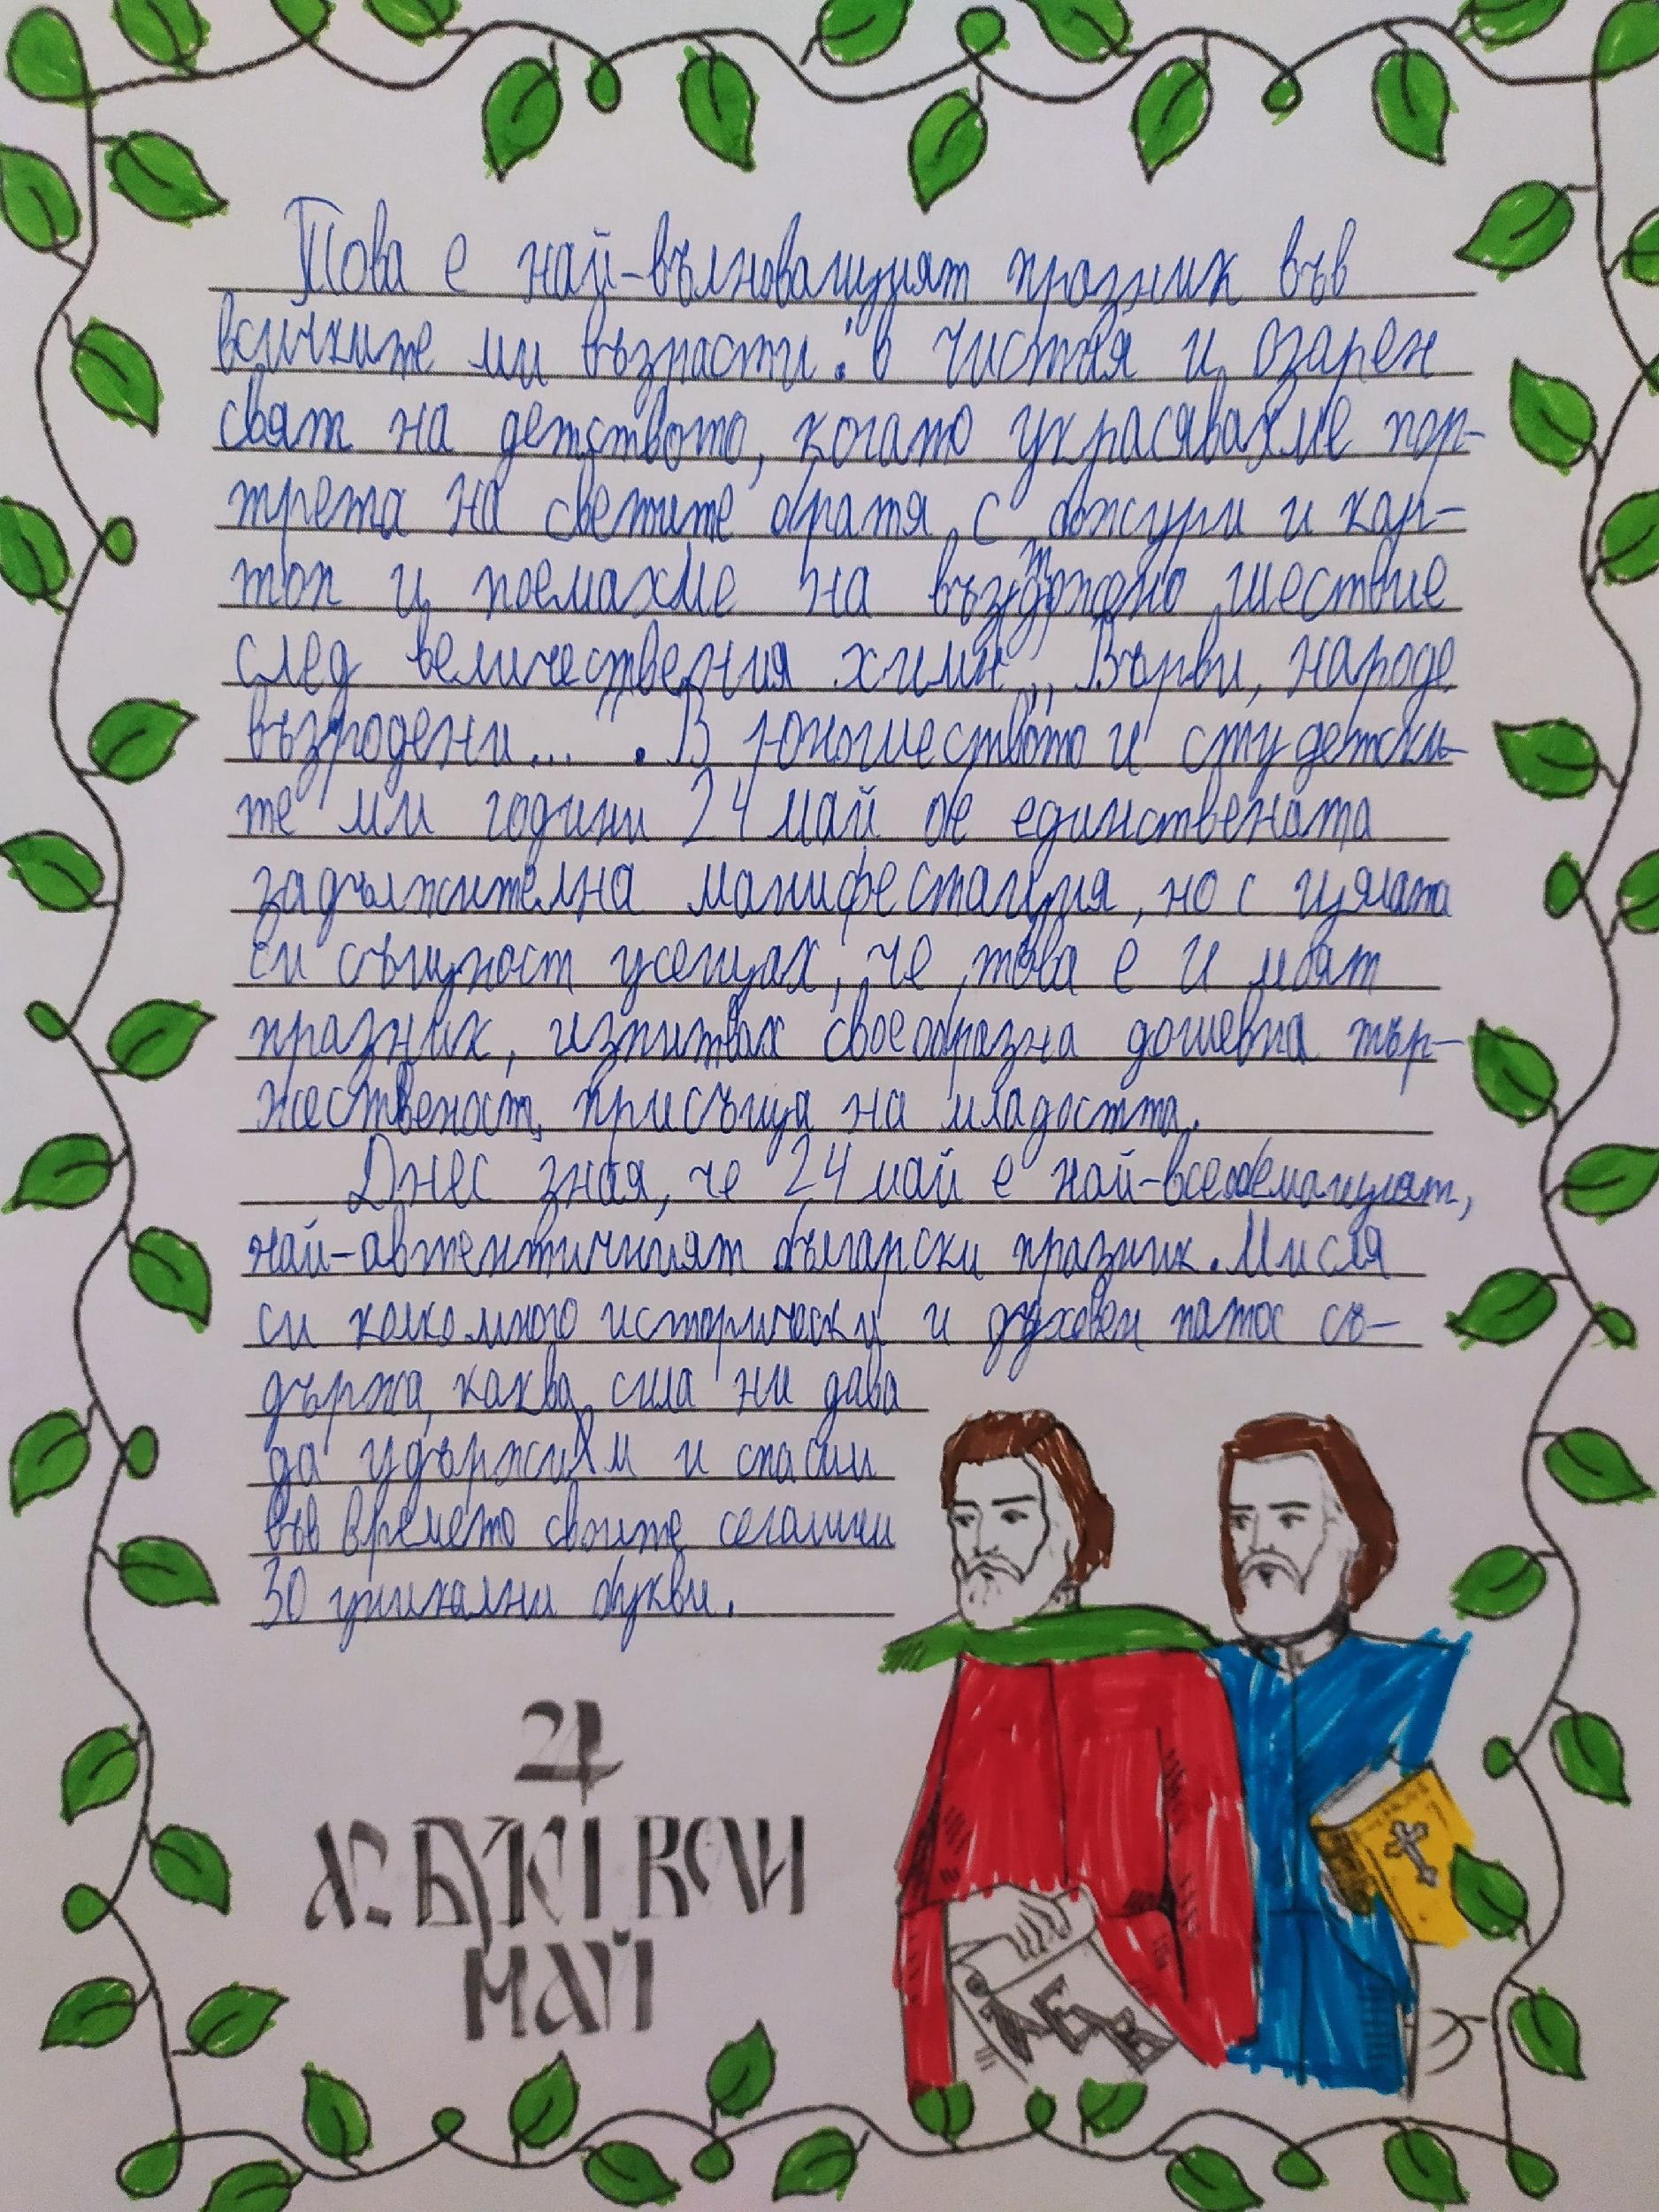 Това е най-вълнуващият празник във
всичките ми възрасти: в чистия и озарен
свят на детството, когато украсявахме пор-
трета на светите братя с божури и кар-
тон и поемахме на възторжено шествие
след величествения химн „Върви, народе
възродени... ". В юношеството и студентски-
те ми години 24 май бе единствената
задължителна манифестация, но с цялата
си същност усещах, че това е и моят
празник, изпитвах своеобразна душевна тър-
жественост, присъща на младостта.
Днес зная, че 24 май е най-всеобемащият,
най-автентичният български празник. Мисля
си колко много исторически и духовен патос съ-
държа, каква сила ни дава
да удържим и спасим
във времето своите сегашни
30 уникални букви.
24
АЗ БУКИ ВЕДИ
МАЙ